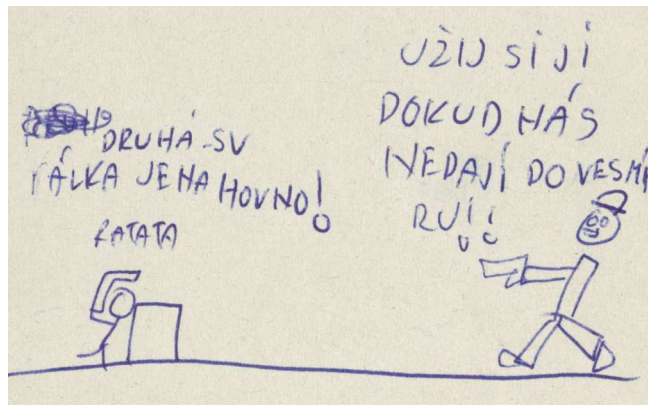 DRUHÁ SV
VÁLKA JE NA HOVNO!
RATATA
UŽIJ SI JÍ
DOKUD NÁS
NEDAJÍ DO VESMÍ
RU!!